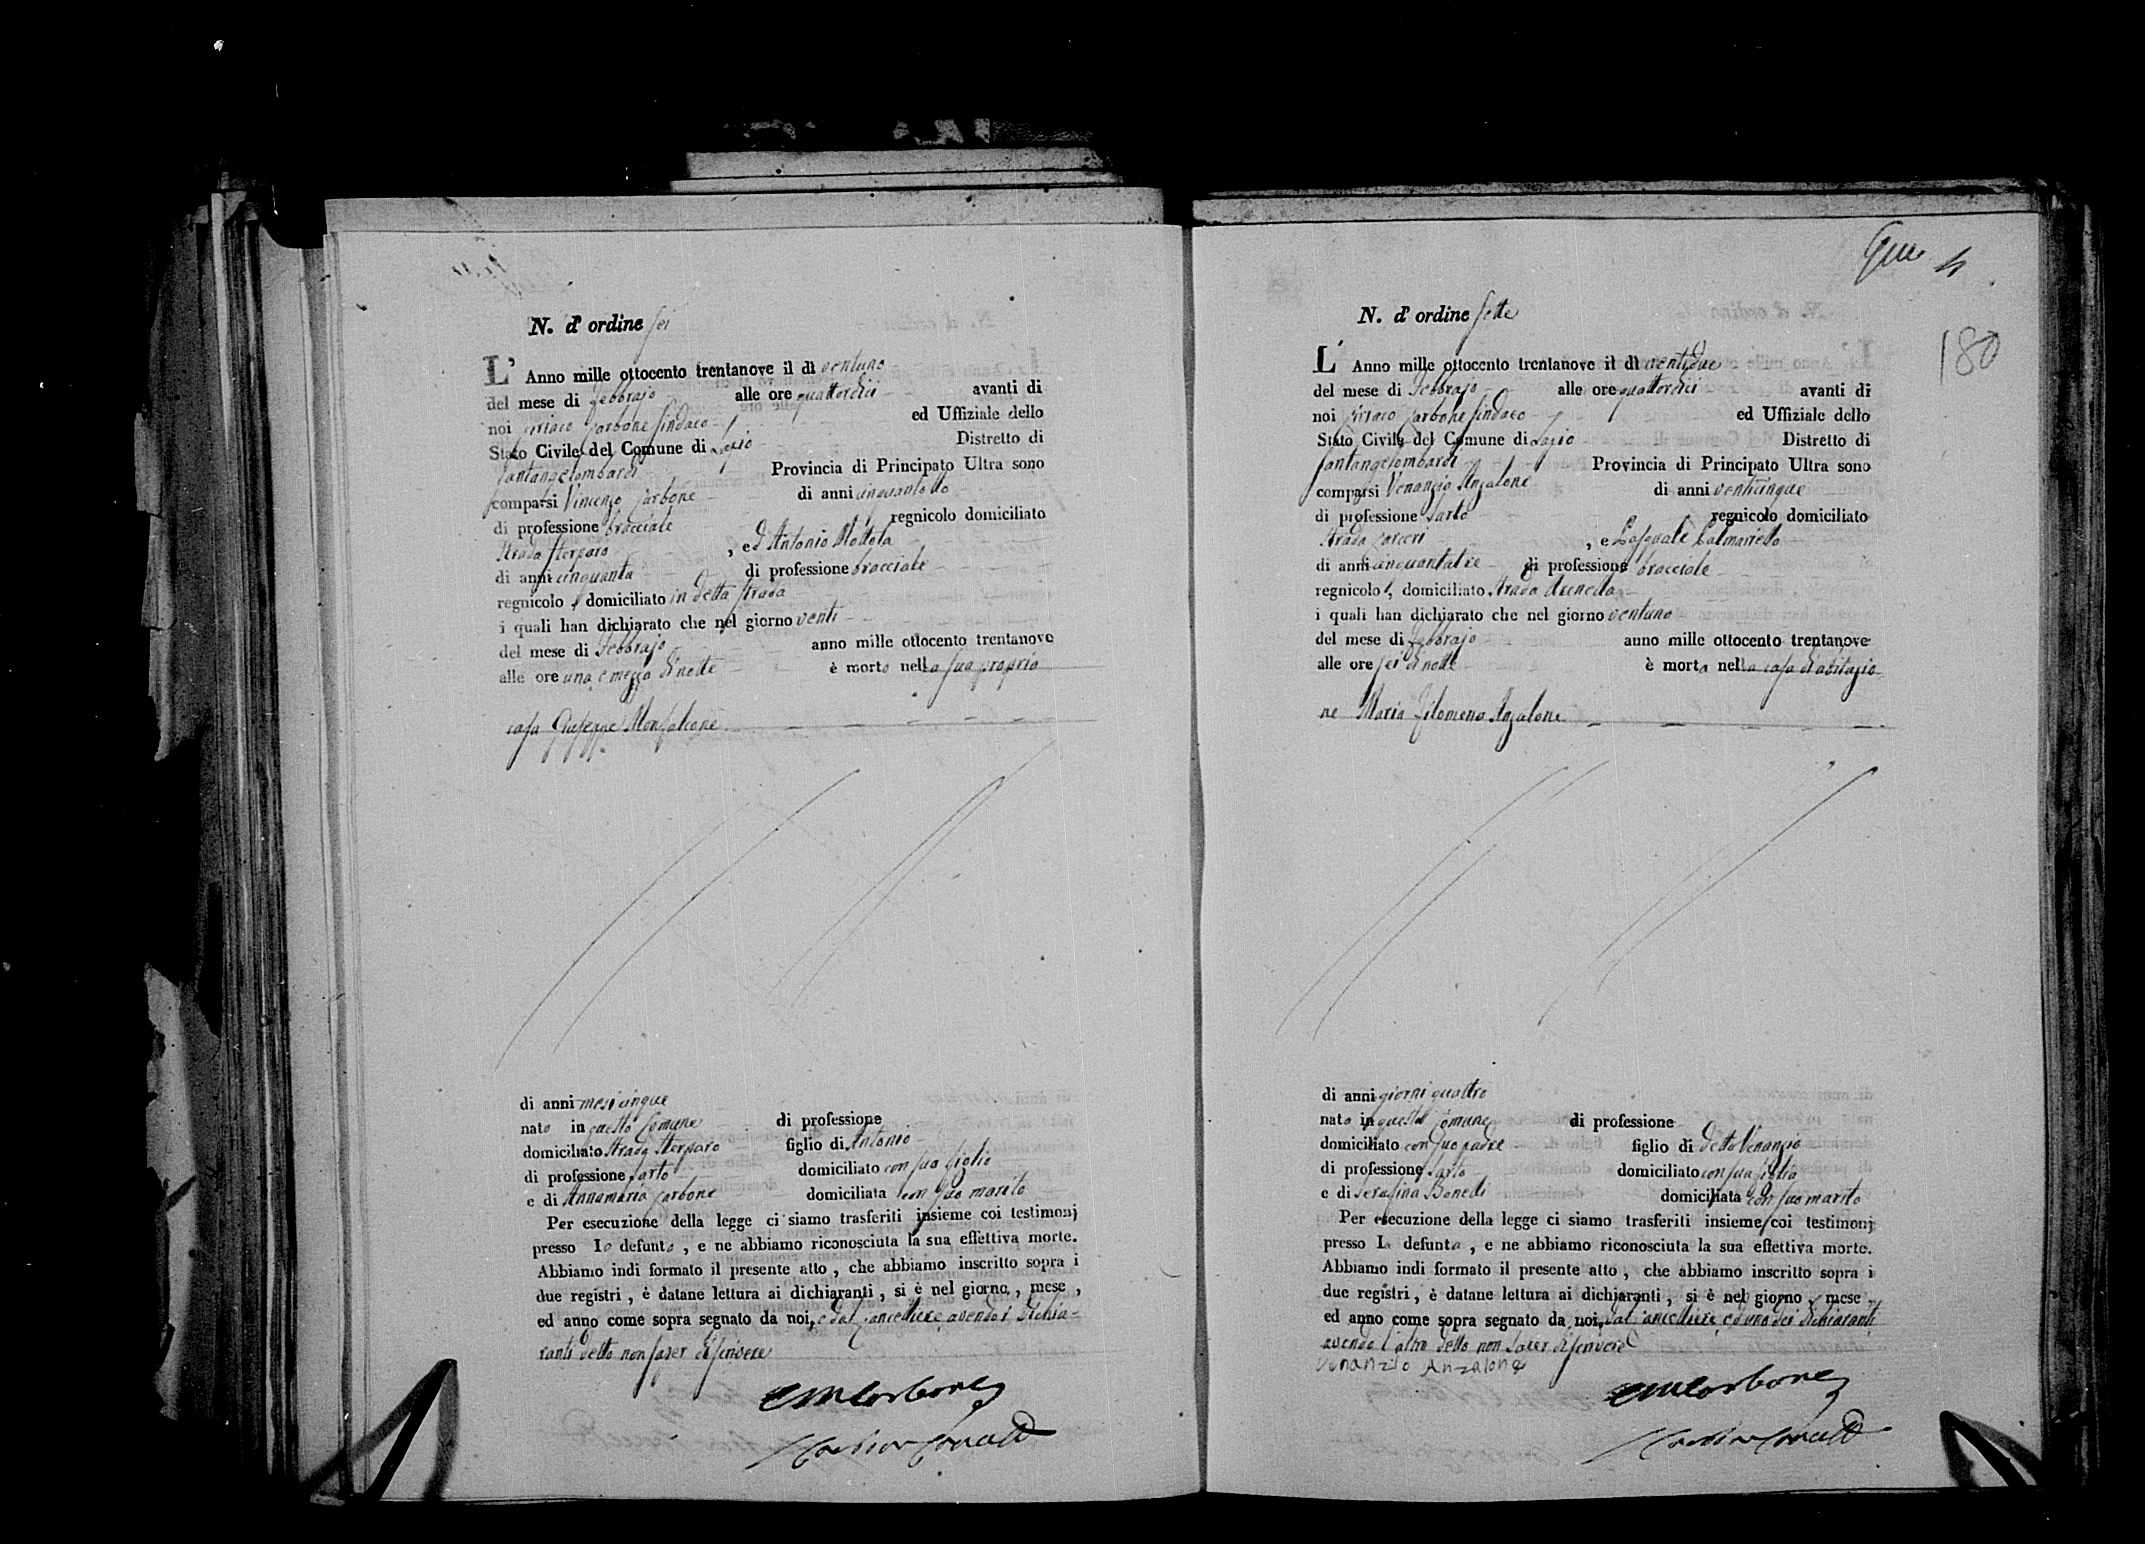 N. d' ordine sei
L' Anno mille ottocento trentanove il dì ventuno
del mese di Febbrajo alle ore quattordici avanti di
noi Ciriaco Carbone Sindaco ed Uffiziale dello
Stato Civile del Comune di Distretto di
Santangelombardi Provincia di Principato Ultra sono
comparsi Vincenzo Carbone di anni cinquantotto
di professione bracciale regnicolo domiciliato
Strada Sterparo , ed Antonio Mottola
di anni cinquanta di professione bracciale
regnicolo, domiciliato in detta strada
i quali han dichiarato che nel giorno venti
del mese di Febbrajo anno mille ottocento trentanove
alle ore una e mezza di notte è morto nella sua propria
casa Giuseppe Monfalcone
di anni mesi cinque
nato in questo Comune di professione
domiciliato Strada Sterparo figlio di Antonio
di professione sarto domiciliato con suo figlio
e di Annamaria Carbone domiciliata con suo marito
Per esecuzione della legge ci siamo trasferiti insieme coi testimonj
presso lo defunto , e ne abbiamo riconosciuta la sua effettiva morte.
Abbiamo indi formato il presente atto , che abbiamo inscritto sopra i
due registri , è datane lettura ai dichiaranti , si è nel giorno , mese ,
ed anno come sopra segnato da noi, e dal Cancelliere avendo i dichia=
ranti detto non saper di scrivere
CM Carbone
Gme 4
180
N. d' ordine sette
L' Anno mille ottocento trentanove il dì ventidue
del mese di Febbrajo alle ore quattordici avanti di
noi Ciriaco Carbone Sindaco ed Uffiziale dello
Stato Civile del Comune di Distretto di
Santangelombardi Provincia di Principato Ultra sono
comparsi Venanzio Anzalone di anni venticinque
di professione sarto regnicolo domiciliato
Strada Carceri , e Pasquale Palmariello
di anni cinquantatre di professione bracciale
regnicolo, domiciliato Strada
i quali han dichiarato che nel giorno ventuno
del mese di Febbrajo anno mille ottocento trentanove
alle ore sei di notte è morta nella casa di abitazio
ne Maria Filomena Anzalone
di anni giorni quattro
nato in questo Comune di professione
domiciliato con suo padre figlio di detto Venanzio
di professione sarto domiciliato con sua figlia
e di Serafina Bonedi domiciliata con suo marito
Per esecuzione della legge ci siamo trasferiti insieme coi testimonj
presso la defunta , e ne abbiamo riconosciuta la sua effettiva morte.
Abbiamo indi formato il presente atto , che abbiamo inscritto sopra i
due registri , è datane lettura ai dichiaranti , si è nel giorno , mese
ed anno come sopra segnato da noi, dal Cancelliere ed uno dei dichiaranti
avendo l'altro detto non saper di scrivere
Venanzio Anzalone
CM Carbone